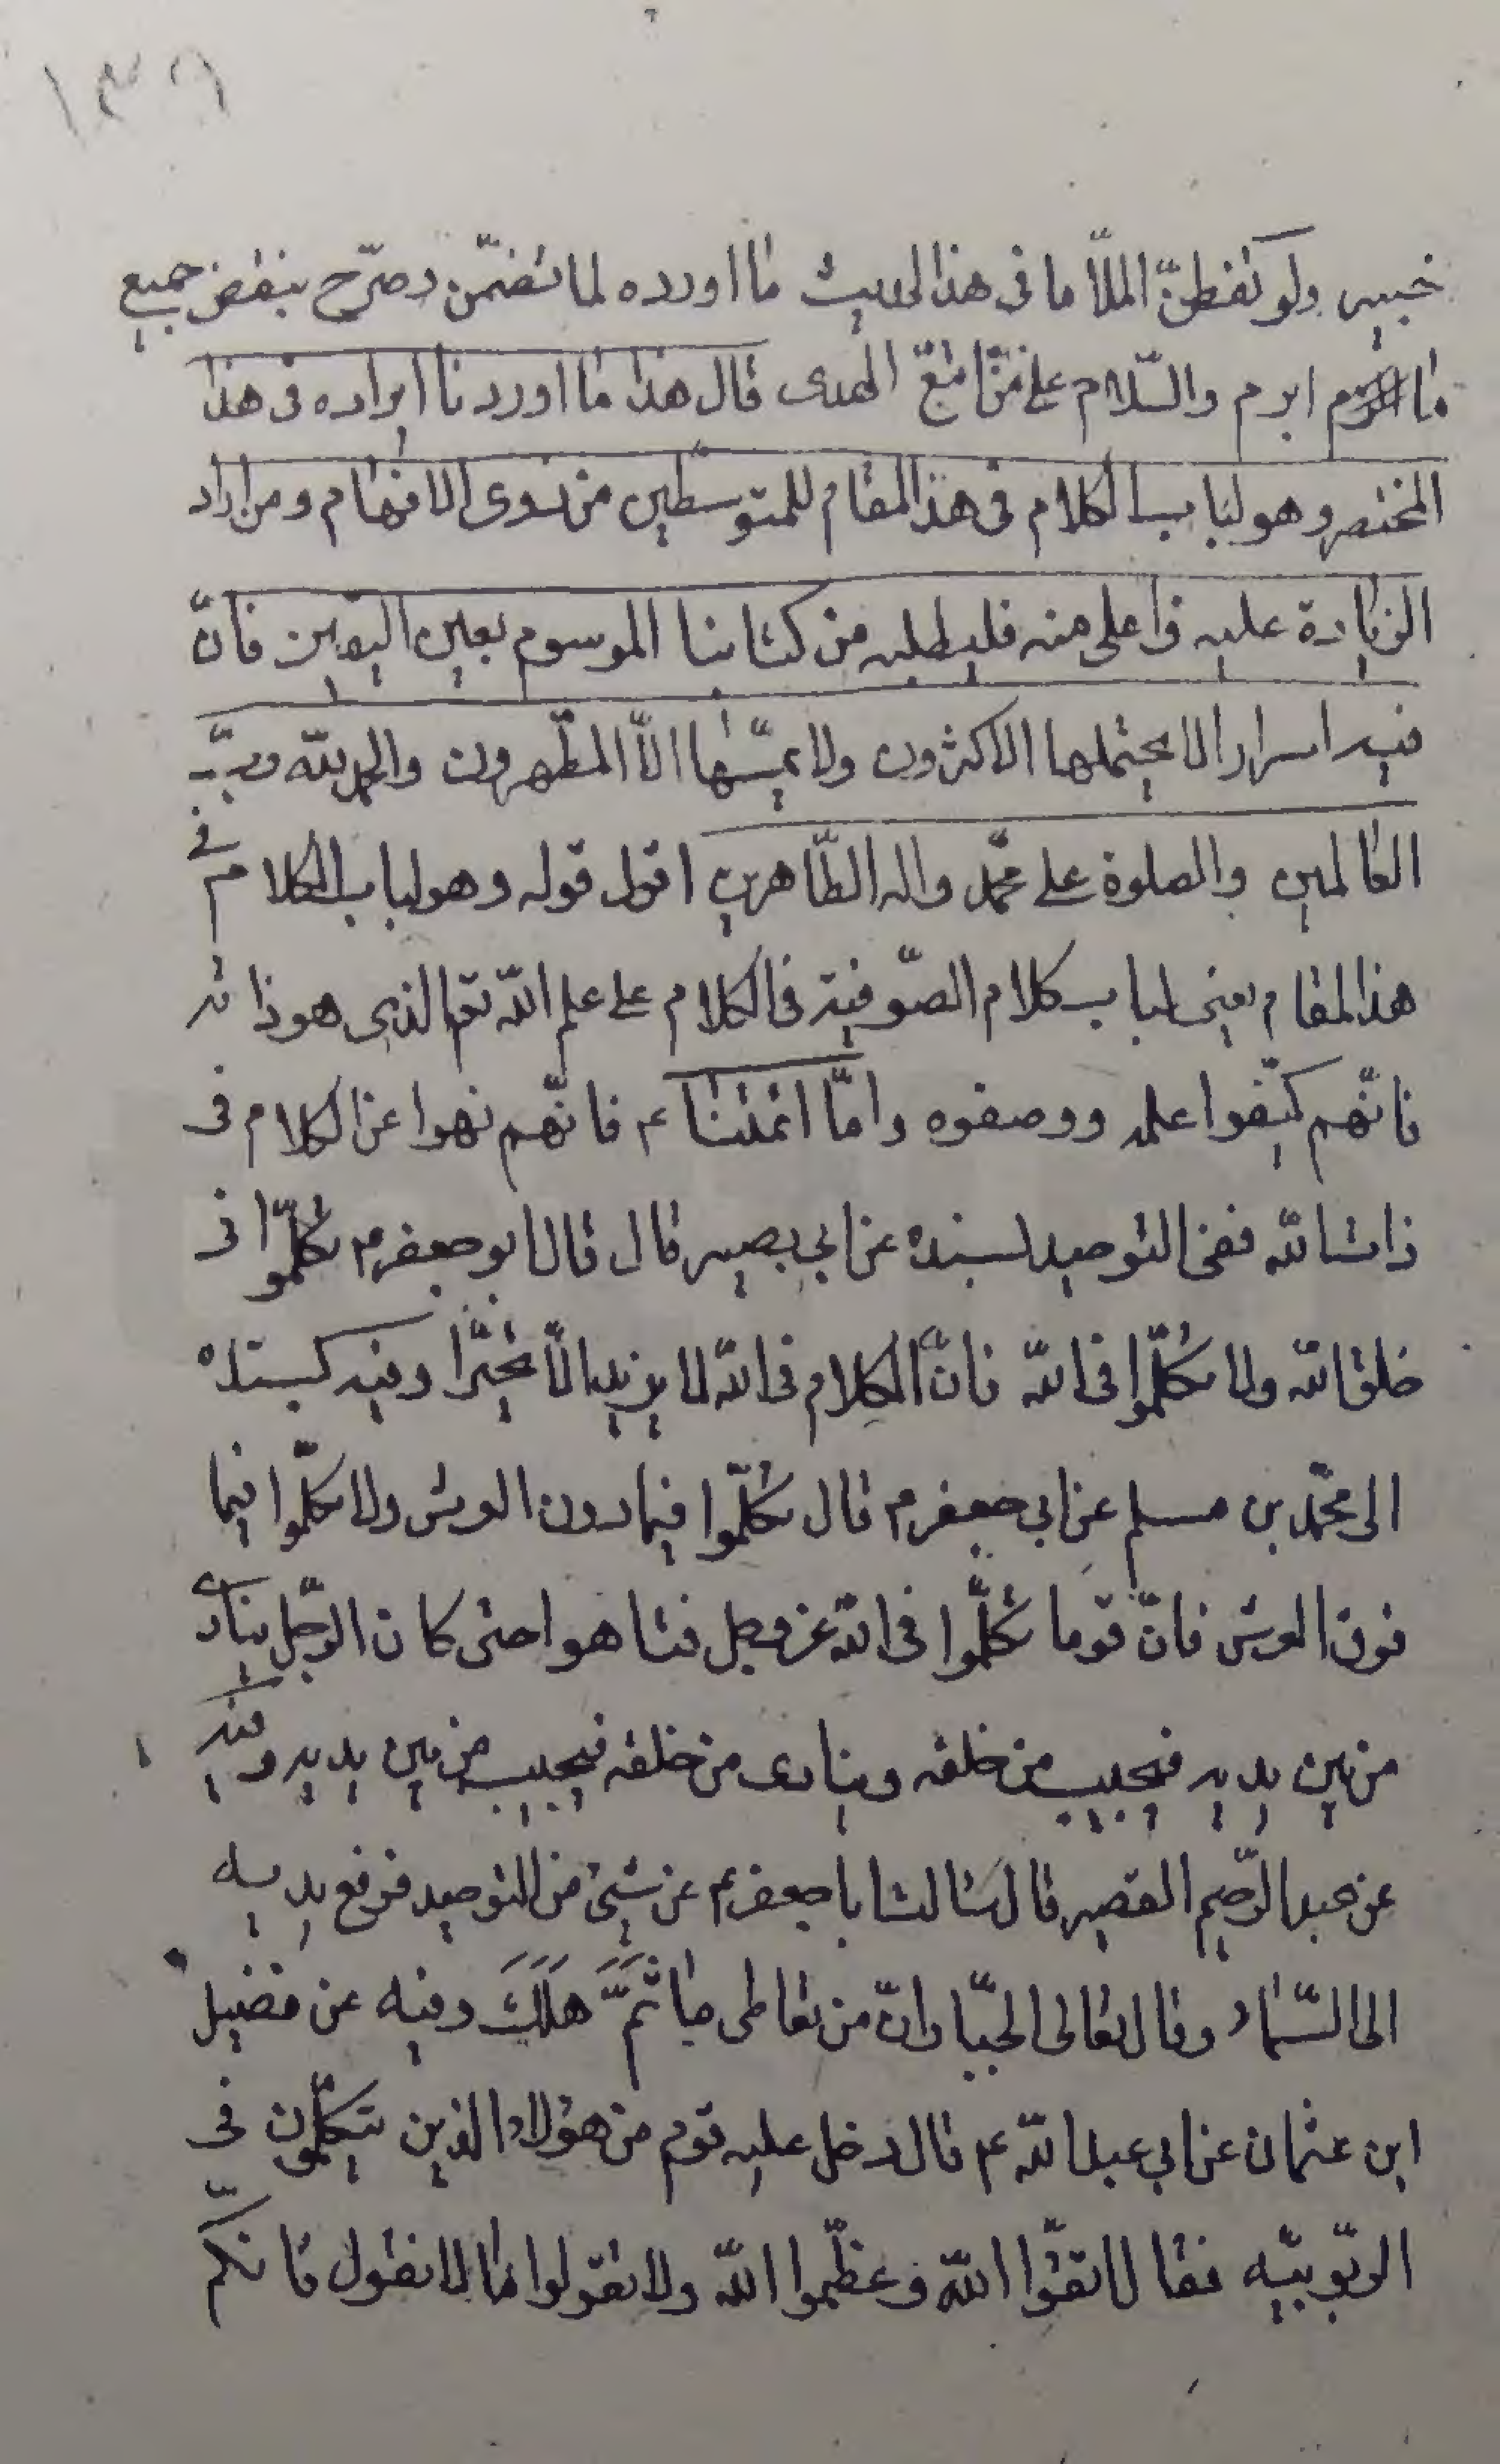 ١٣٩
خبير ولو تفطّن الملّا ما فى هذا الحديث ما اورده لما تضمّن وصرّح بنقض جميع
ما ابرم والسّلام على من اتّبع الهدى قال هذا ما اوردنا ايراده فى هذا
المختصر وهو لباب الكلام فى هذا المقام للمتوسّطين من ذوى الافهام ومن اراد
الزيادة عليه واعلى منه فليطلبه من كتابنا الموسوم بعين اليقين فانّ
فيه اسرارا لا يحتملها الاكثرون ولا يمسّها الّا المطّهرون والحمد لله ربّ
العالمين والصلوة على محمّد واله الطّاهرين اقول قوله وهو لباب الكلام فى
هذا المقام يعنى لباب كلام الصّوفية فى الكلام على علم اللّه تعا الذى هو ذاته
فانّهم كيّفوا علمه ووصفوه وامّا ائمّتنا ع فانّهم نهوا عن الكلام فى
ذات اللّه ففى التوحيد بسنده عن ابي بصير قال قال ابو جعفر ع تكلّموا فى
خلق اللّه ولا تكلّموا فى اللّه فانّ الكلام فى اللّه لا يزيد الّا تحيّرا وفيه كسنده
الى محمّد بن مسلم عن ابي جعفر ع قال تكلّموا فيما دون العرش ولا تكلّموا فيما
فوق العرش فانّ قوما تكلّموا فى اللّه عز وجل فتاهوا حتى كان الرّجل ينادى
من بين يديه فيجيب من خلفه وينادى من خلفه فيجيب من بين يديه وفيه
عن عبد الرّحيم القصير قال سئالت ابا جعفر ع عن شيئ من التوحيد فرفع يديه
الى السّماء وقال تعالى الجبّار انّ من تعاطى ما ثَمَّ هَلَكَ وفيه عن فضيل
ابن عثمان عن ابي عبد اللّه ع قال دخل عليه قوم من هؤلاء الذين يتكلّمون فى
الرّبوبيّه فقال اتقوّا اللّه وعظّموا اللّه ولا تقولوا ما لا نقول فانّكم